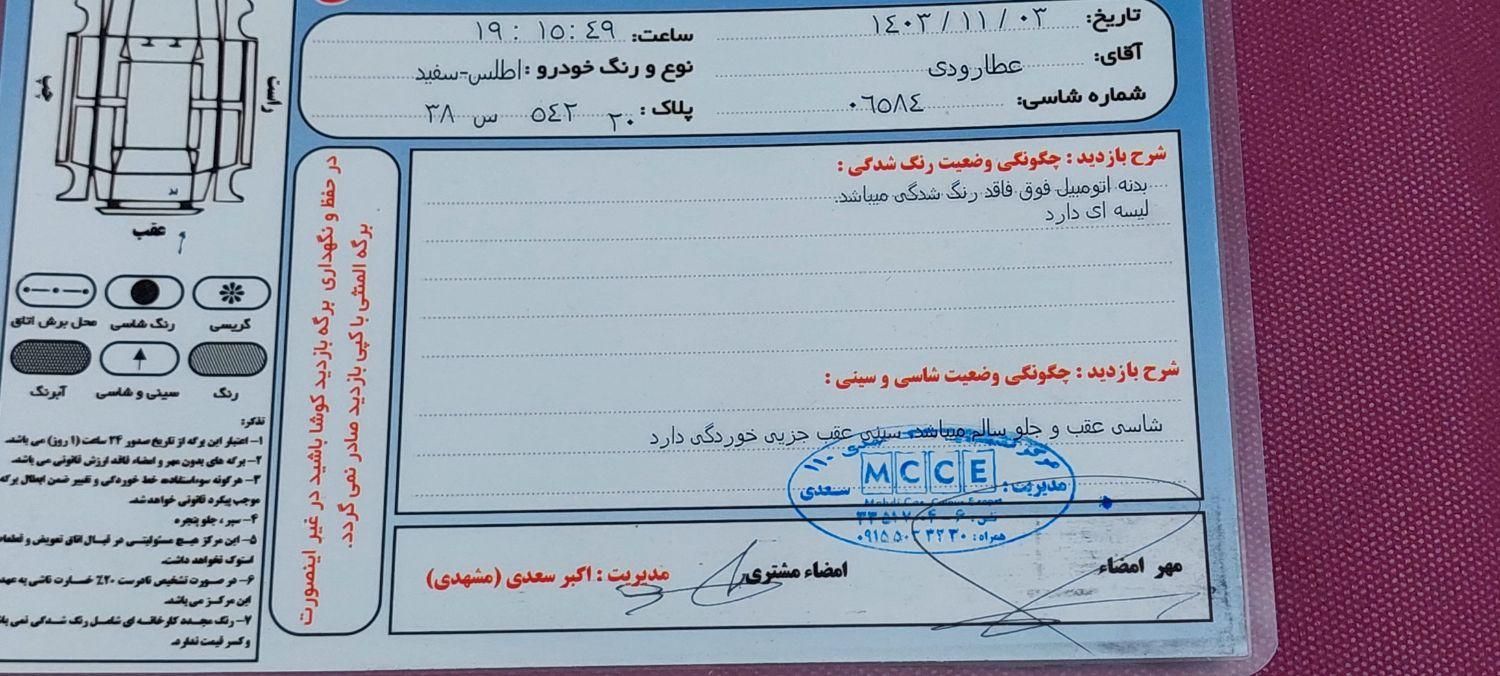 تاریخ: ۱٤۰۳/۱۱/۰۳
ساعت: ۱۹:۱٥:٤۹
آقای: عطارودی
نوع و رنگ خودرو: اطلس-سفید
شماره شاسی: ۰٦٥۸٤
پلاک: ۲۰ ٥٤۲ س ۳۸
شرح بازدید: چگونگی وضعیت رنگ شدگی:
بدنه اتومبیل فوق فاقد رنگ شدگی میباشد.
لیسه ای دارد
شرح بازدید: چگونگی وضعیت شاسی و سینی:
شاسی عقب و جلو سالم میباشد. سینی عقب جزیی خوردگی دارد
MCCE
مدیریت: سعدی
مهر امضاء
امضاء مشتری
مدیریت: اکبر سعدی (مشهدی)
در حفظ و نگهداری برگه بازدید کوشا باشید در غیر اینصورت
برگه المثنی با کپی بازدید صادر نمی گردد.
راست
چپ
عقب
گریسی
رنگ شاسی
محل برش اتاق
رنگ
سینی و شاسی
آبرنگ
تذکر:
۱- اعتبار این برگه از تاریخ صدور ۲۴ ساعت (۱ روز) می باشد.
۲- برگه های بدون مهر و امضاء فاقد ارزش قانونی می باشد.
۳- هرگونه سوءاستفاده، خط خوردگی و تغییر ضمن ابطال برگه
موجب پیگرد قانونی خواهد شد.
۴- سپر، جلو پنجره
۵- این مرکز هیچ مسئولیتی در قبال اتاق تعویض و قطعات
استوک نخواهد داشت.
۶- در صورت تشخیص نادرست ۲۰٪ خسارت ناشی به عهده
این مرکز می باشد.
۷- رنگ مجدد کارخانه ای شامل رنگ شدگی نمی باشد
و کسر قیمت ندارد.